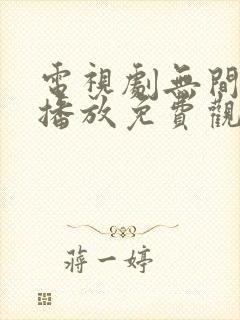 電視劇無間
播放免費觀
蔣一婷